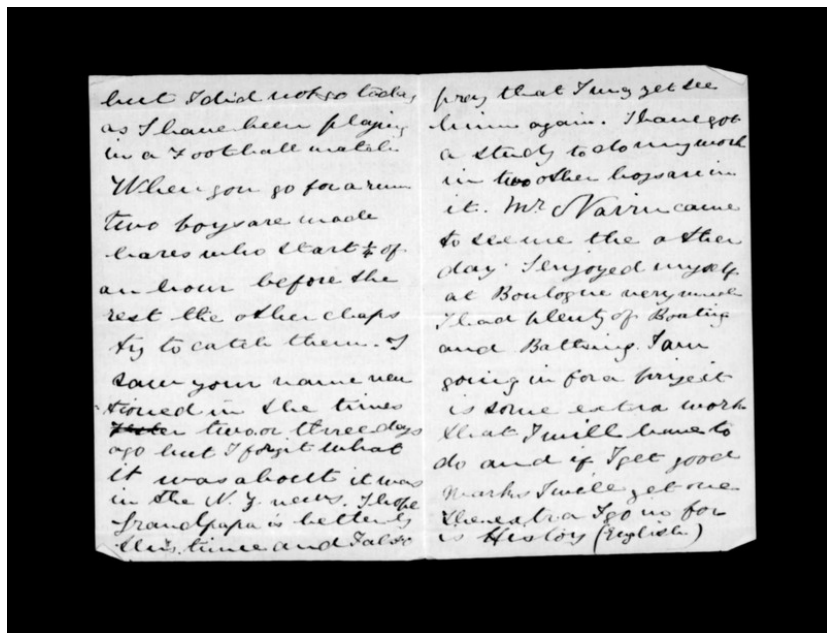 but I did not go today
as I have been playing
in a Football match
When you go for a run
two boys are made
hares who start ¼ of
an hour before the
rest the other chaps
try to catch them. I
saw your name men
tioned in the times
two or three days
ago but I forgit what
it was about it was
in the N. Z. news. I hope
Grandpapa is better by
this time and I also
pray that I may get see
him again. I have got
a study to do my work
in two other boys are in
it. Mr. came
to see me the other
day. I enjoyed myself
at Boulogne very much
I had plenty of Boating
and Bathing. I am
going in for a prize it
is some extra work
that I will have to
do and if I get good
marks I will get one
the extra I go in for
is History (English)